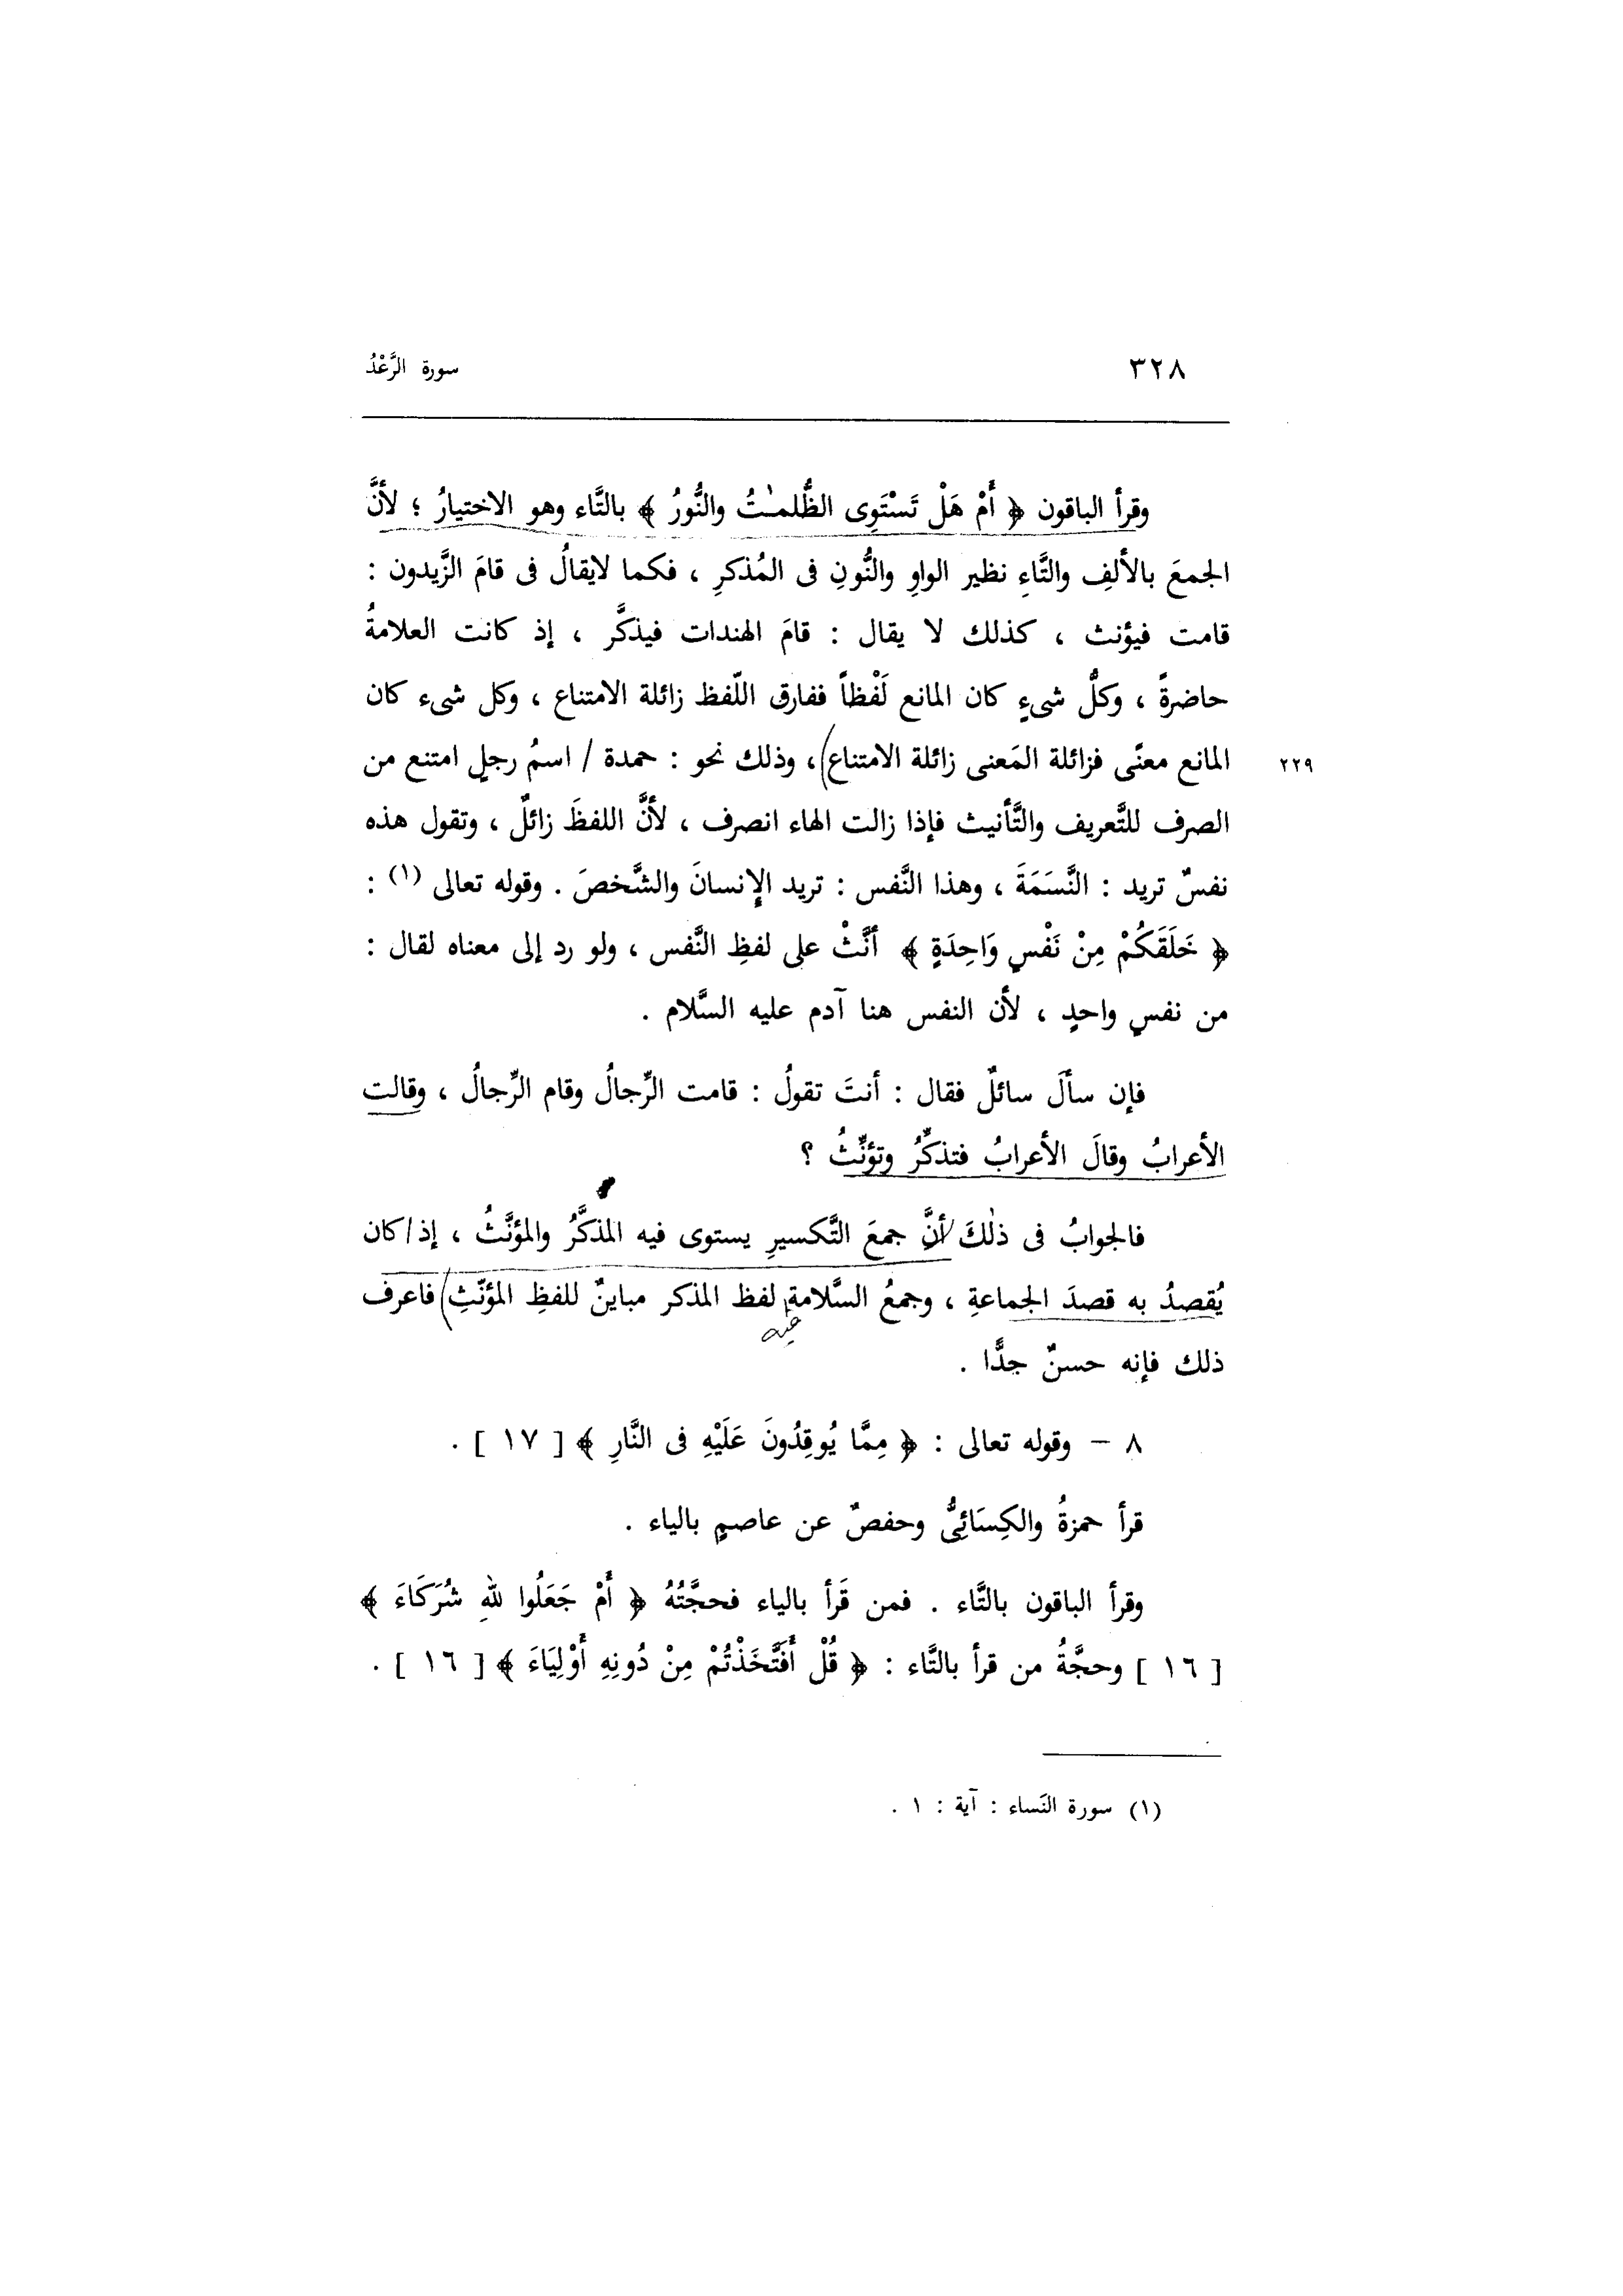 ٣٢٨
سورة الرَّعْدُ
وقرأ الباقون ﴿ أَمْ هَلْ تَسْتَوِى الظُّلمـٰتُ والنُّورُ ﴾ بالتَّاء وهو الاختيارُ ؛ لأنَّ
الجمعَ بالألفِ والتَّاءِ نظير الواوِ والنُّونِ فى المُذكرِ ، فكما لايقالُ فى قامَ الزَّيدون :
قامت فيؤنث ، كذلك لا يقال : قامَ الهندات فيذكَّر ، إذ كانت العلامةُ
حاضرةً ، وكلُّ شىءٍ كان المانع لَفْظاً ففارق اللّفظ زائلة الامتناع ، وكل شىء كان
المانع معنًى فزائلة المَعنى زائلة الامتناع ، وذلك نحو : حمدة / اسمُ رجلٍ امتنع من
٢٢٩
الصرف للتَّعريف والتَّأنيث فإذا زالت الهاء انصرف ، لأنَّ اللفظَ زائلٌ ، وتقول هذه
نفسٌ تريد : النَّسَمَةَ ، وهذا النَّفس : تريد الإنسانَ والشَّخصَ . وقوله تعالى (١) :
﴿ خَلَقَكُمْ مِنْ نَفْسٍ وَاحِدَةٍ ﴾ أنَّثْ على لفظِ النَّفس ، ولو رد إلى معناه لقال :
من نفسٍ واحدٍ ، لأن النفس هنا آدم عليه السَّلام .
فإن سألَ سائلٌ فقال : أنتَ تقولُ : قامت الرِّجالُ وقام الرِّجالُ ، وقالت
الأعرابُ وقالَ الأعرابُ فتذكِّرُ وتؤنِّثُ ؟
فالجوابُ فى ذٰلكَ أنَّ جمعَ التَّكسيرِ يستوى فيه المذكَّرُ والمؤنَّثُ ، إذ/كان
يُقصدُ به قصدَ الجماعةِ ، وجمعُ السَّلامةِ لفظ المذكر مباينٌ للفظِ المؤنّثِ فاعرف
ذلك فإنه حسنٌ جدًّا .
٨ – وقوله تعالى : ﴿ مِمَّا يُوقِدُونَ عَلَيْهِ فى النَّارِ ﴾ [ ١٧ ] .
قرأ حمزةُ والكِسَائِىُّ وحفصٌ عن عاصمٍ بالياء .
وقرأ الباقون بالتَّاء . فمن قَرأ بالياء فحجَّتُهُ ﴿ أَمْ جَعَلُوا للهِ شُرَكَاءَ ﴾
[ ١٦ ] وحجَّةُ من قرأ بالتَّاء : ﴿ قُلْ أَفَتَّخَذْتُمْ مِنْ دُونِهِ أَوْلِيَاءَ ﴾ [ ١٦ ] .
(١) سورة النَساء : آية : ١ .